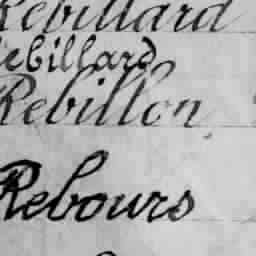 Rebillard
Rebillard
Rebillon
Rebours